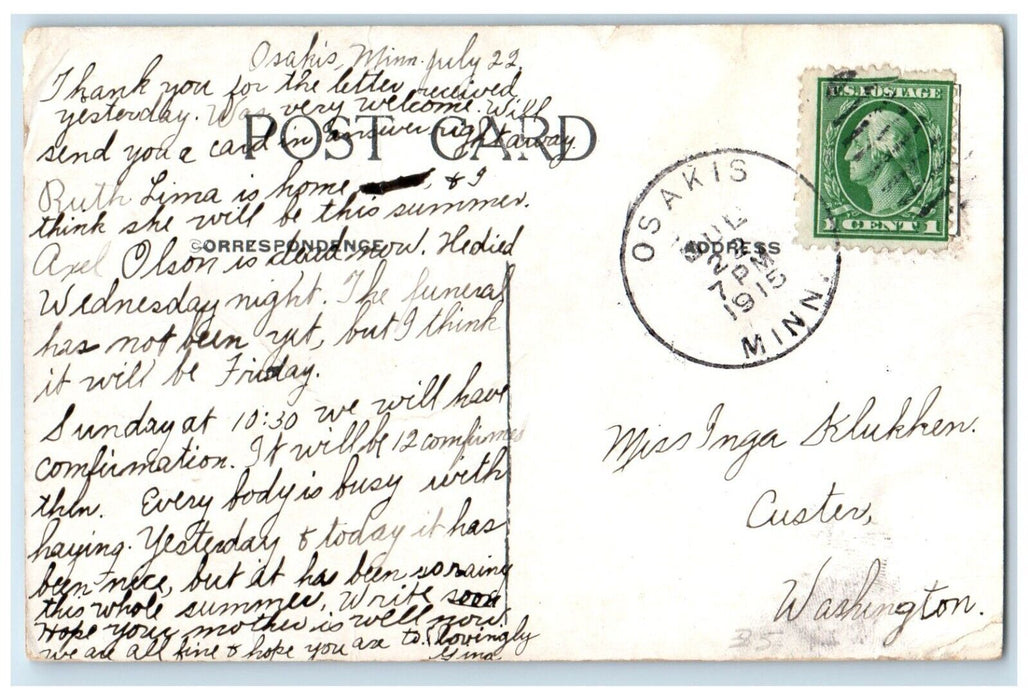 Osakis, Minn. July 22.
Thank you for the letter received
yesterday. Was very welcome. Will
send you a card in answer right away.
POST CARD
Ruth Lima is home, & I
think she will be this summer.
CORRESPONDENCE
Axel Olson is dead now. He died
Wednesday night. The funeral
has not been yet, but I think
it will be Friday.
Sunday at 10:30 we will have
comfirmation. It will be 12 comfirmed
then. Every body is busy with
haying. Yesterday & today it has
been nice, but it has been so rainy
this whole summer. Write soon
Hope your mother is well now.
we are all fine & hope you are to. Lovingly
Gina
U.S. POSTAGE
1 CENT 1
ADDRESS
OSAKIS
JUL
7 PM
1915
MINN.
Miss Inga Klukken.
Custer,
Washington.
35